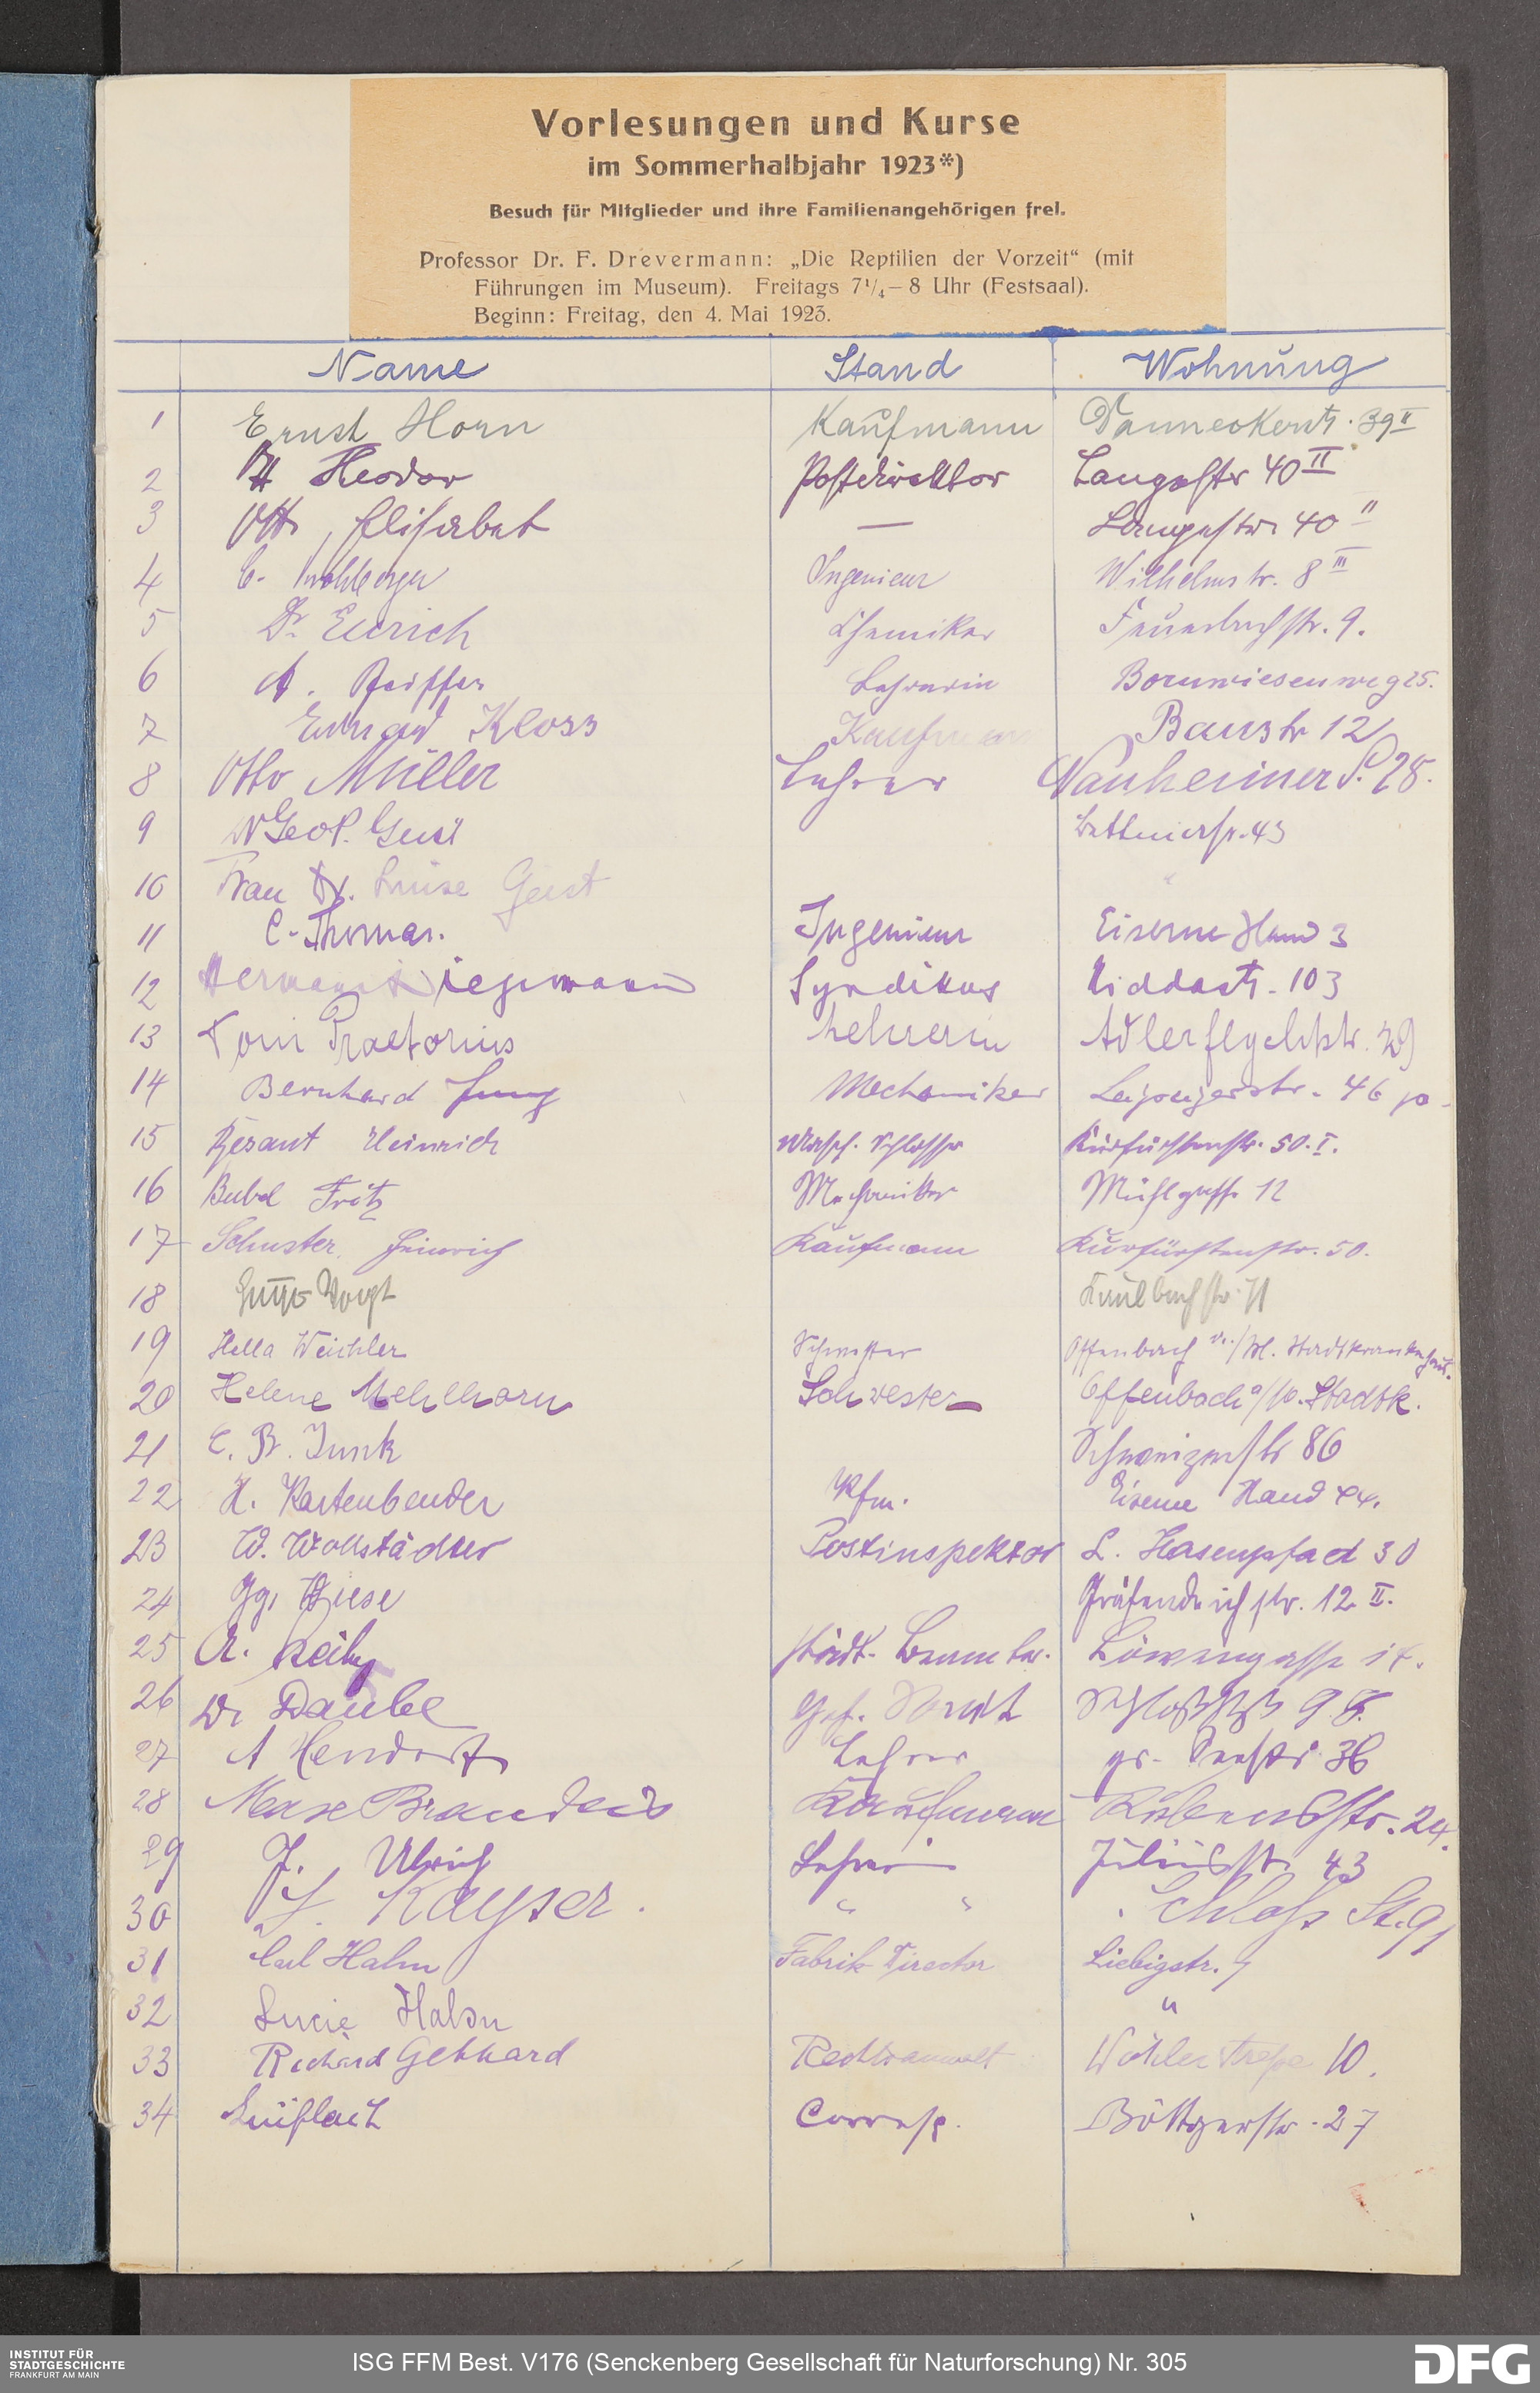 Vorlesungen und Kurse
im Sommerhalbjahr 1923*)
Besuch für Mitglieder und ihre Familienangehörigen frei.
Professor Dr. F. Drevermann: „Die Reptilien der Vorzeit“ (mit
Führungen im Museum). Freitags 7¼–8 Uhr (Festsaal).
Beginn: Freitag, den 4. Mai 1923.
Name Stand Wohnung
1 Ernst Horn Kaufmann Danneckerstr. 39 II
2 Ott Theodor Postdirektor Langestr 40 II
3 Ott, Elisabet — Langestr 40 II
4 C. Ingenieur Wilhelmstr. 8 III
5 Dr. Eurich Chemiker Feuerbachstr. 9.
6 A. Pfeiffer Lehrerin Bornwiesenweg 25.
7 Kloss Kaufmann Baustr 12
8 Otto Müller Lehrer Nauheimer S. 28.
9 43
10 Frau Dr. Luise Geist "
11 C. Thomas. Ingenieur Eiserne Hand 3
12 Hermann Syndikus Niddastr. 103
13 Toni Praetorius Lehrerin Adlerflychtstr. 29
14 Bernhard Jung Mechaniker Leipzigerstr. 46 p.
15 Besant Heinrich Masch. Schlosser Kurfürstenstr. 50. I.
16 Bubel Fritz Mechaniker Mühlgasse 12
17 Schuster Heinrich Kaufmann Kurfürstenstr. 50.
18 Voigt Kaulbachstr. 71
19 Hella Weichler Schwester Offenbach a./M. Stadtkrankenhaus.
20 Helene Mehlhorn Schwester Offenbach a/M. Stadtk.
21 C. B. Junk Schweizerstr 86
22 H. Kastenbender Kfm. Eiserne Hand 44.
23 W. Wollstädter Postinspektor L. Hasenpfad 30
24 Gg. Wiese Gräfendeichstr. 12 II.
25 A. städt. Beamter. Löwengasse
26 Dr Daube Schloßstr 98.
27 A Lehrer gr. Seestr 36
28 Max Brandeis Kaufmann Rubensstr. 24.
29 J. Ulrich Lehrer Juliusstr. 43
30 Kayser. " " Schloss St. 91
31 Carl Hahn Fabrik Director Liebigstr. 9
32 Lucie Hahn "
33 Richard Gebhard Rechtsanwalt Wöhlerstrasse 10.
34 Corresp. Böttgerstr. 27
INSTITUT FÜR
STADTGESCHICHTE
FRANKFURT AM MAIN
ISG FFM Best. V176 (Senckenberg Gesellschaft für Naturforschung) Nr. 305
DFG